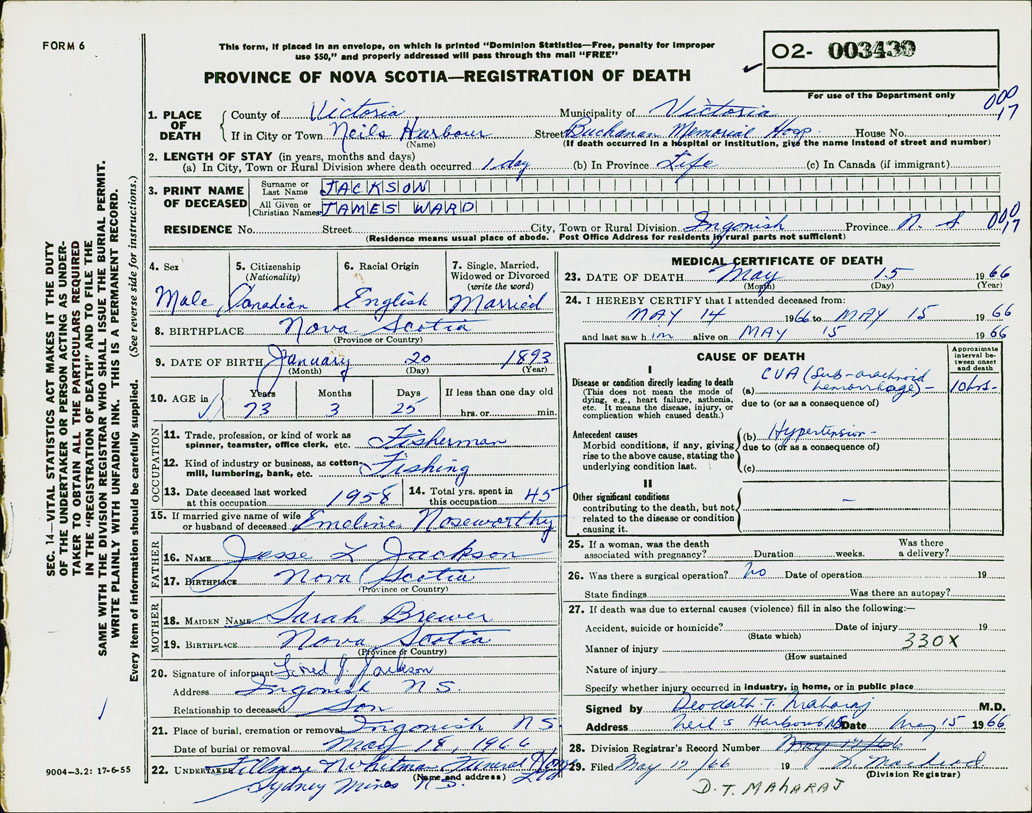 FORM 6
This form, if placed in an envelope, on which is printed "Dominion Statistics—Free, penalty for improper
use $50," and properly addressed will pass through the mail "FREE"
PROVINCE OF NOVA SCOTIA—REGISTRATION OF DEATH
02- 003430
For use of the Department only
000
17
1. PLACE OF DEATH
County of Victoria Municipality of Victoria
If in City or Town Neils Harbour Street Buchanan Memorial Hosp. House No.
(Name) (If death occurred in a hospital or institution, give the name instead of street and number)
2. LENGTH OF STAY (in years, months and days)
(a) In City, Town or Rural Division where death occurred 1 day (b) In Province Life (c) In Canada (if immigrant)
3. PRINT NAME OF DECEASED
Surname or Last Name JACKSON
All Given or Christian Names JAMES WARD
RESIDENCE No. Street City, Town or Rural Division Ingonish Province N. S
(Residence means usual place of abode. Post Office Address for residents in rural parts not sufficient)
000
17
4. Sex Male
5. Citizenship (Nationality) Canadian
6. Racial Origin English
7. Single, Married, Widowed or Divorced (write the word) Married
8. BIRTHPLACE Nova Scotia
(Province or Country)
9. DATE OF BIRTH January 20 1893
(Month) (Day) (Year)
10. AGE in Years Months Days If less than one day old
73 3 25 hrs. or min.
OCCUPATION
11. Trade, profession, or kind of work as spinner, teamster, office clerk, etc. Fisherman
12. Kind of industry or business, as cotton-mill, lumbering, bank, etc. Fishing
13. Date deceased last worked at this occupation 1958
14. Total yrs. spent in this occupation 45
15. If married give name of wife or husband of deceased Emeline Noseworthy
FATHER
16. NAME Jesse L Jackson
17. BIRTHPLACE Nova Scotia
(Province or Country)
MOTHER
18. MAIDEN NAME Sarah Brewer
19. BIRTHPLACE Nova Scotia
(Province or Country)
20. Signature of informant J. Jackson
Address Ingonish N S.
Relationship to deceased Son
21. Place of burial, cremation or removal Ingonish N S.
Date of burial or removal May 18, 1966
22. UNDERTAKER Funeral
(Name and address)
Sydney Mines N. S.
MEDICAL CERTIFICATE OF DEATH
23. DATE OF DEATH May 15 1966
(Month) (Day) (Year)
24. I HEREBY CERTIFY that I attended deceased from:
MAY 14 1966 to MAY 15 1966
and last saw him alive on MAY 15 1966
CAUSE OF DEATH
Approximate interval between onset and death
I
Disease or condition directly leading to death
(This does not mean the mode of dying, e.g., heart failure, asthenia, etc. It means the disease, injury, or complication which caused death.)
(a) CVA (Sub-arachnoid hemorrhage) – 10 hrs-
due to (or as a consequence of)
Antecedent causes
Morbid conditions, if any, giving rise to the above cause, stating the underlying condition last.
(b) Hypertension -
due to (or as a consequence of)
(c)
II
Other significant conditions
contributing to the death, but not related to the disease or condition causing it. –
25. If a woman, was the death associated with pregnancy? Duration weeks. Was there a delivery?
26. Was there a surgical operation? No Date of operation 19
State findings Was there an autopsy?
27. If death was due to external causes (violence) fill in also the following:—
Accident, suicide or homicide? Date of injury 19
(State which)
Manner of injury 330X
(How sustained
Nature of injury
Specify whether injury occurred in industry, in home, or in public place
Signed by Deodath T. Maharaj M.D.
Address Neil's Harbour NS Date May 15 1966
28. Division Registrar's Record Number May 17/66
29. Filed May 17/66 19
(Division Registrar)
D. T. MAHARAJ
SEC. 14—VITAL STATISTICS ACT MAKES IT THE DUTY
OF THE UNDERTAKER OR PERSON ACTING AS UNDER-
TAKER TO OBTAIN ALL THE PARTICULARS REQUIRED
IN THE "REGISTRATION OF DEATH" AND TO FILE THE
SAME WITH THE DIVISION REGISTRAR WHO SHALL ISSUE THE BURIAL PERMIT.
WRITE PLAINLY WITH UNFADING INK. THIS IS A PERMANENT RECORD.
Every item of information should be carefully supplied. (See reverse side for instructions.)
9004—3.2: 17-6-55